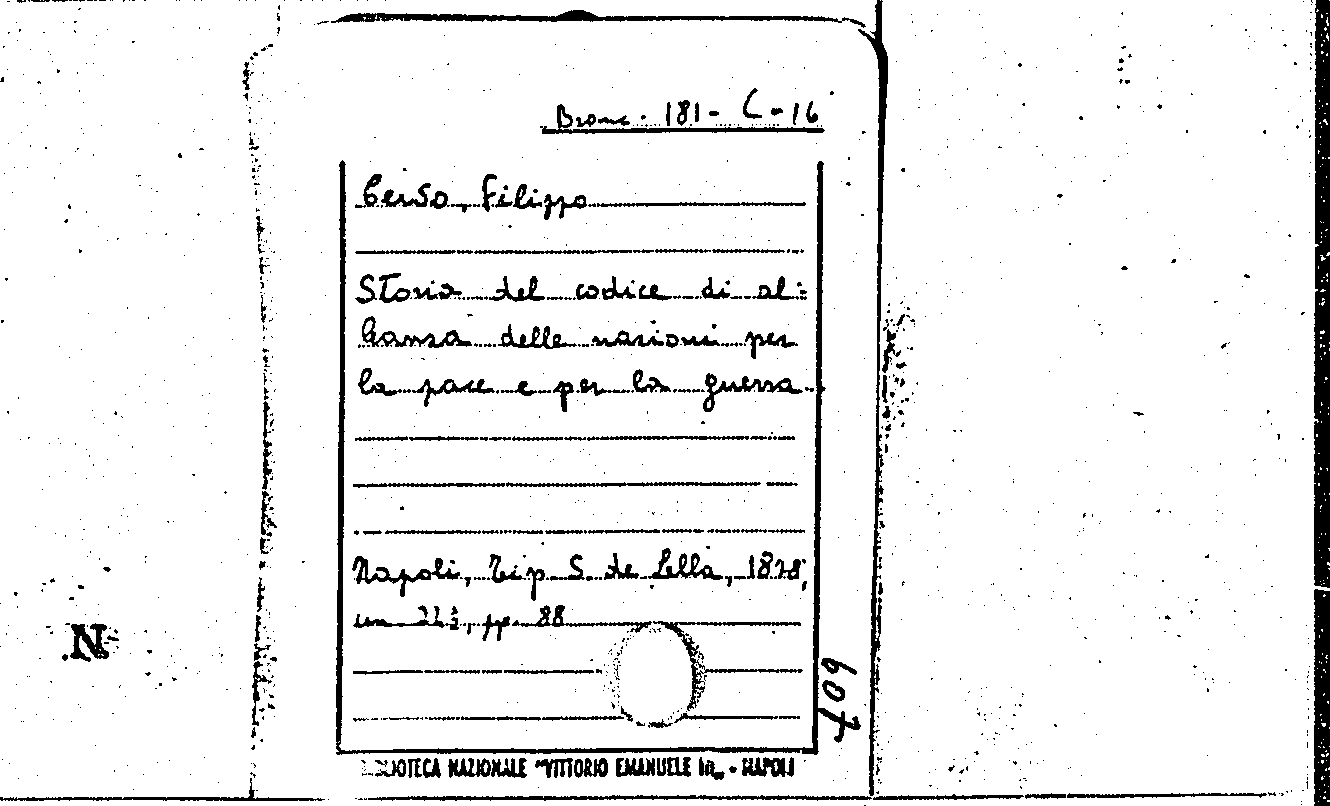 Branc. 181 - C - 16
Filippo
Storia del codice di al=
leanza delle nazioni per
la pace e per la guerra
Napoli, Tip. S. de Lella, 1878,
cm 22½, pp. 88
BIBLIOTECA NAZIONALE "VITTORIO EMANUELE III„ - NAPOLI
N